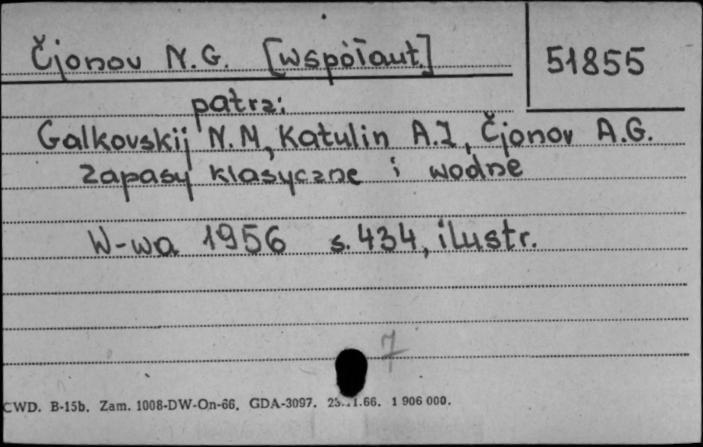 Čjonov N.G. [współaut.]
51855
patrz:
Galkovskij N.M, Katulin A.I, Čjonov A.G.
Zapasy klasyczne i wodne
W-wa 1956 s. 434, ilustr.
7
CWD. B-15b. Zam. 1008-DW-On-66. GDA-3097. 1 906 000.